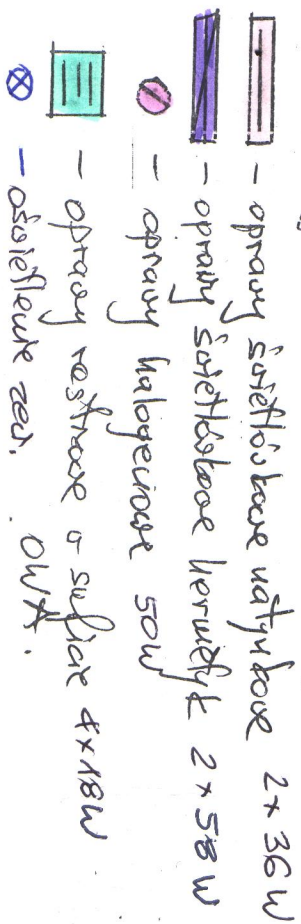 - oprawy świetlówkowe natynkowe 2 x 36 W
- oprawy świetlówkowe hermetyk 2 x 58 W
- oprawy halogenowe 50W
- oprawy rastrowe w suficie 4 x 18W
OWA.
- oświetlenie zew.